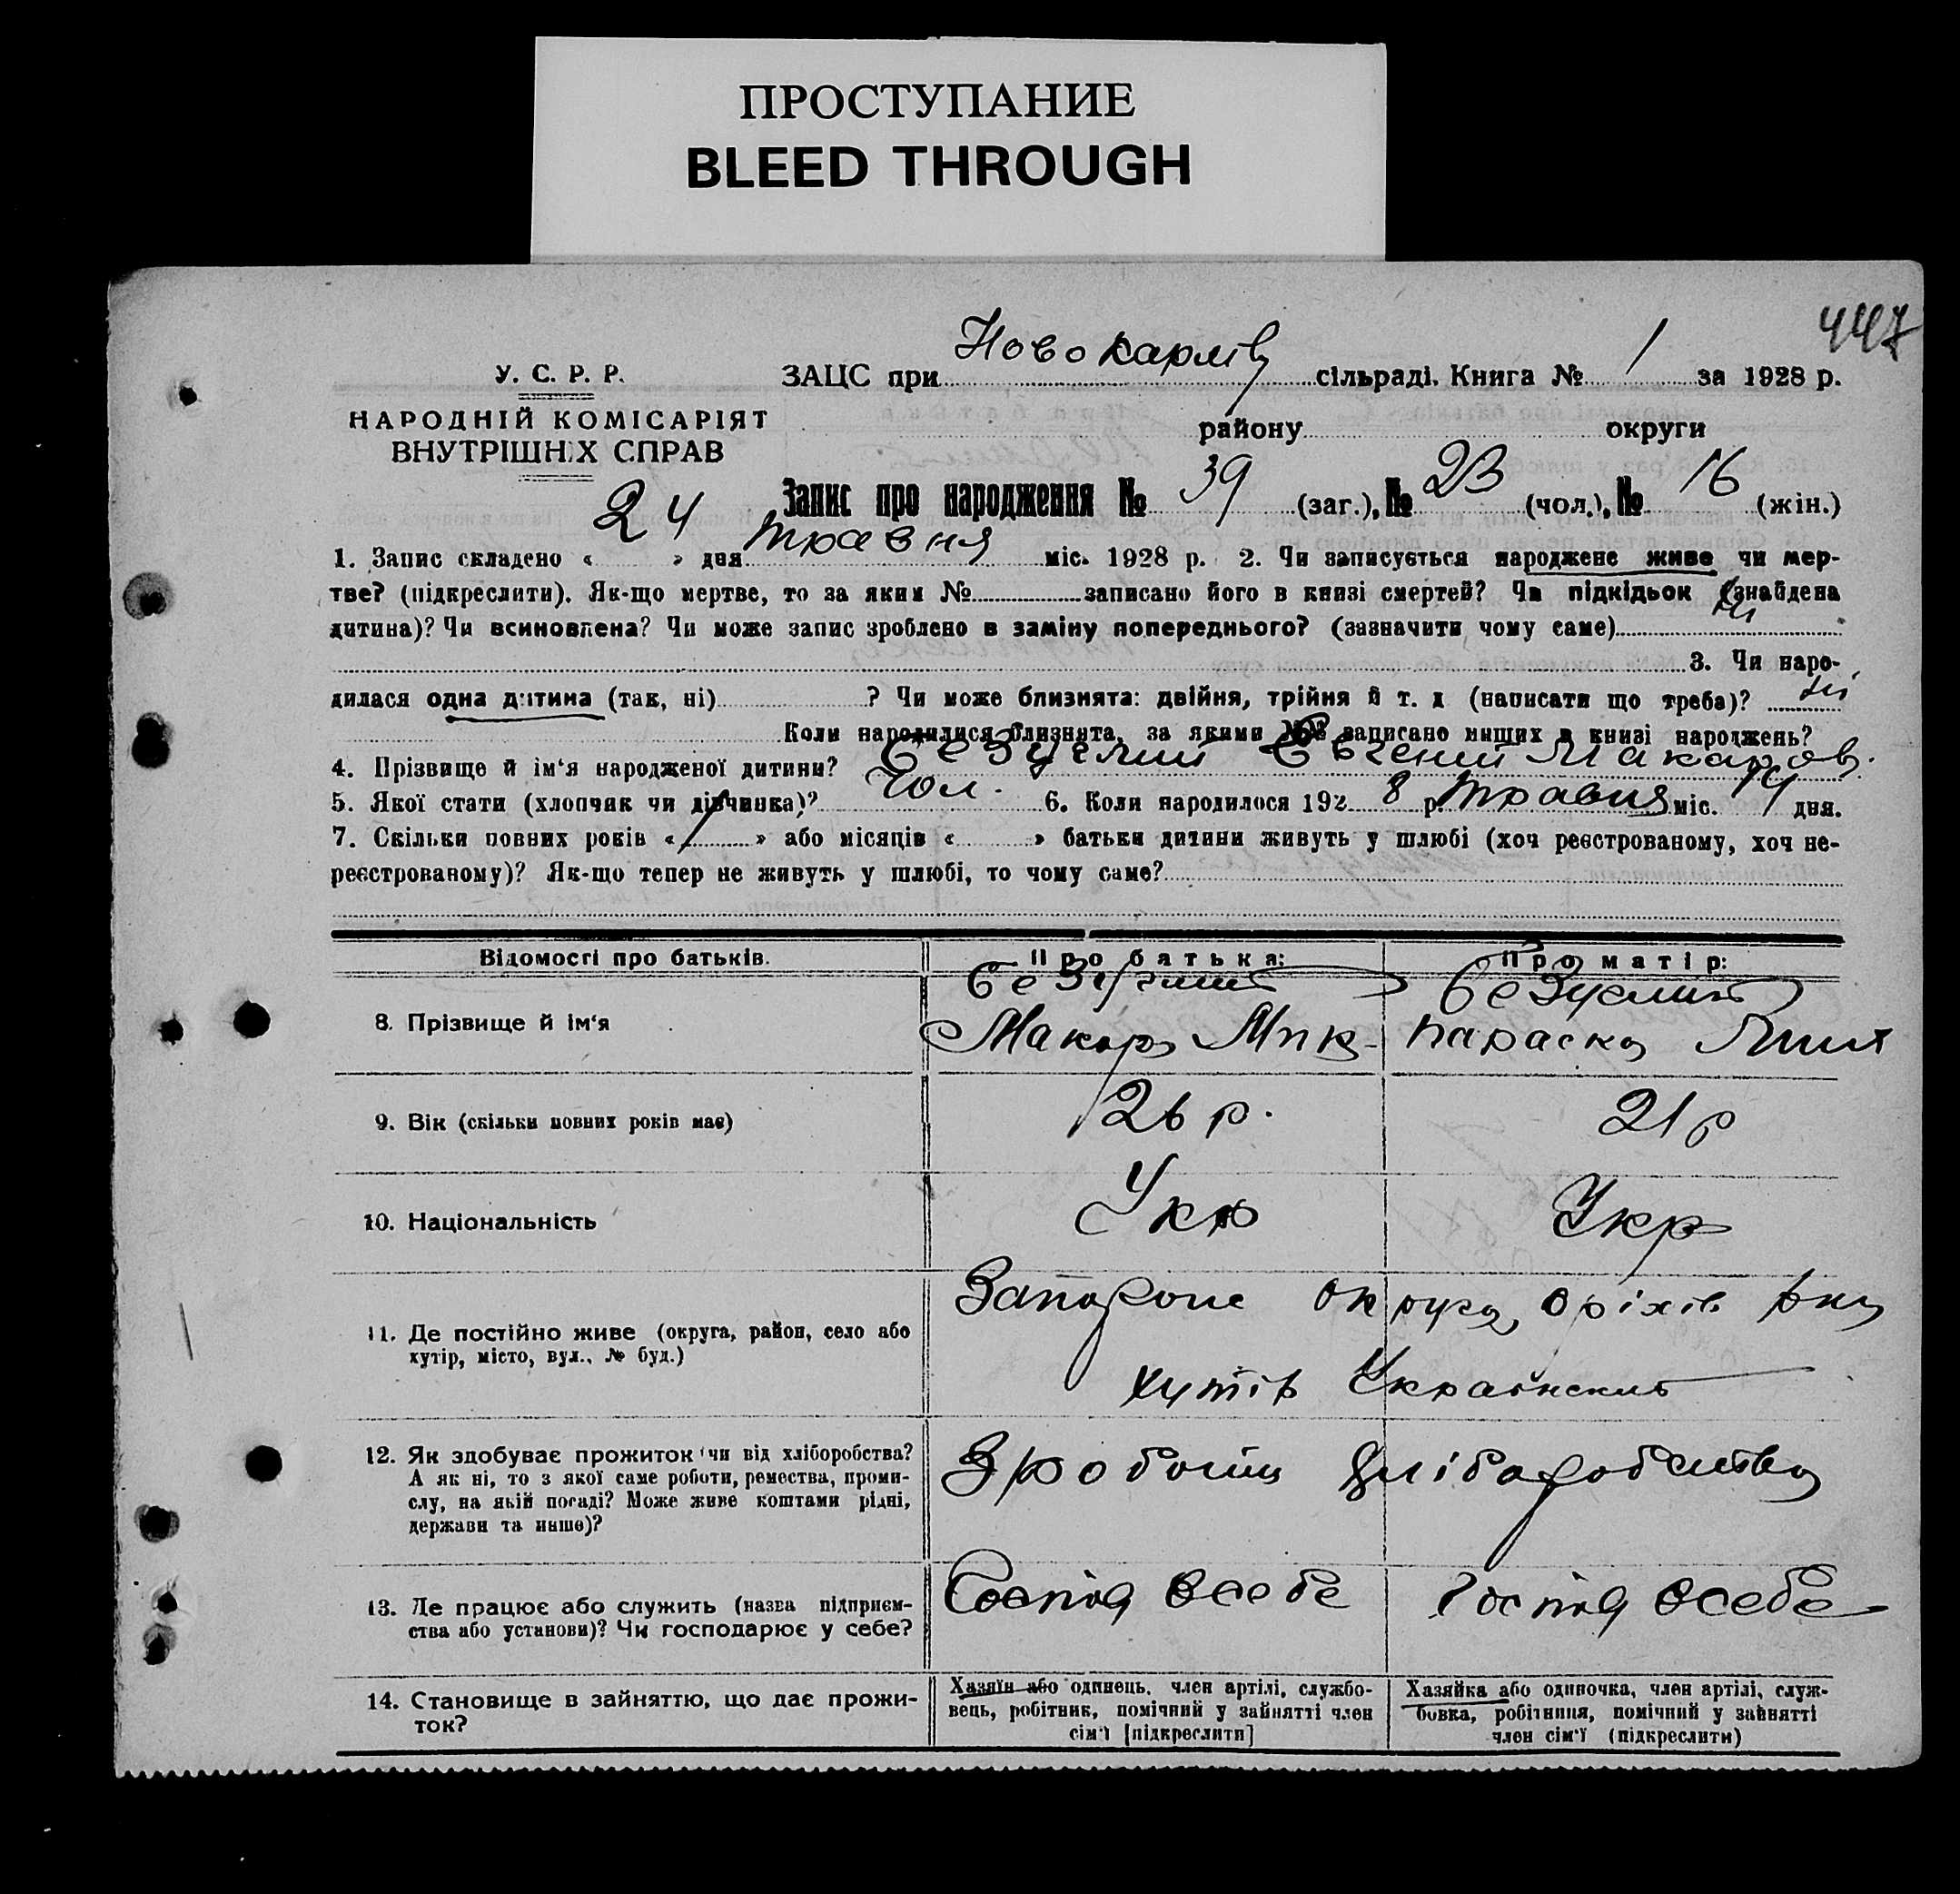 ПРОСТУПАНИЕ
BLEED THROUGH
447
У. С. Р. Р.
ЗАЦС при Новокарлів сільраді. Книга № 1 за 1928 р.
НАРОДНІЙ КОМІСАРІЯТ
ВНУТРІШНІХ СПРАВ
району округи
Запис про народження № 39 (заг.), № 23 (чол.), № 16 (жін.)
1. Запис складено « 24 » дня травня міс. 1928 р. 2. Чи записується народжене живе чи мер-
тве? (підкреслити). Як-що мертве, то за яким № записано його в книзі смертей? Чи підкідьок (знайдена
дитина)? Чи всиновлена? Чи може запис зроблено в заміну попереднього? (зазначити чому саме) ні
3. Чи наро-
дилася одна дитина (так, ні) ? Чи може близнята: двійня, трійня й т. д (написати що треба)? ні
Коли народилися близнята, за якими №№ записано инших в книзі народжень?
4. Прізвище й ім'я народженої дитини? Безуглий Евгений Макаров.
5. Якої стати (хлопчик чи дівчинка)? Чол. 6. Коли народилося 192 8 р травня міс. 14 дня.
7. Скільки повних років « 1 » або місяців « » батьки дитини живуть у шлюбі (хоч реєстрованому, хоч не-
реєстрованому)? Як-що тепер не живуть у шлюбі, то чому саме?
Відомості про батьків.
Про батька:
Про матір:
8. Прізвище й ім'я
Безуглий
Макар Мик
Параска
9. Вік (скільки повних років має)
26 р.
21 р
10. Національність
Укр
Укр
11. Де постійно живе (округа, район, село або
хутір, місто, вул., № буд.)
округа, Оріхів
хутір Украінский
12. Як здобуває прожиток чи від хліборобства?
А як ні, то з якої саме роботи, ремества, проми-
слу, на якій посаді? Може живе коштами рідні,
держави та инше)?
З роботи хліборобства
13. Де працює або служить (назва підприєм-
ства або установи)? Чи господарює у себе?
Господ всебе
Господ всебе
14. Становище в зайняттю, що дає прожи-
ток?
Хазяїн або одинець, член артілі, службо-
вець, робітник, помічний у зайнятті член
сім'ї [підкреслити]
Хазяйка або одиночка, член артілі, служ-
бовка, робітниця, помічний у зайнятті
член сім'ї (підкреслити)